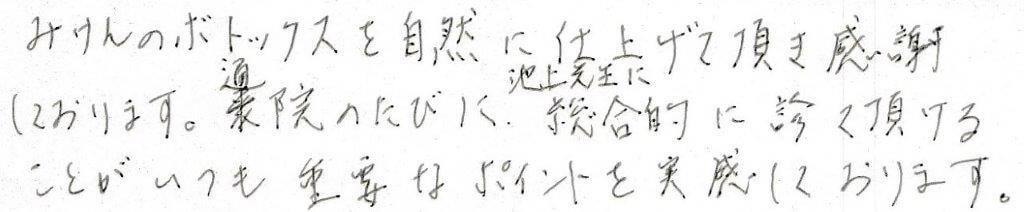 みけんのボトックスを自然に仕上げて頂き感謝
しております。通院のたびに、池上先生に総合的に診て頂ける
ことがいつも重要なポイントを実感しております。